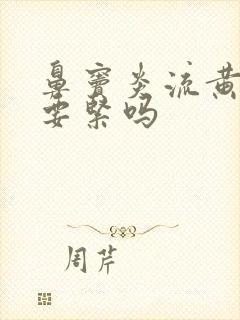 鼻窦炎流黄
要紧吗
周芹